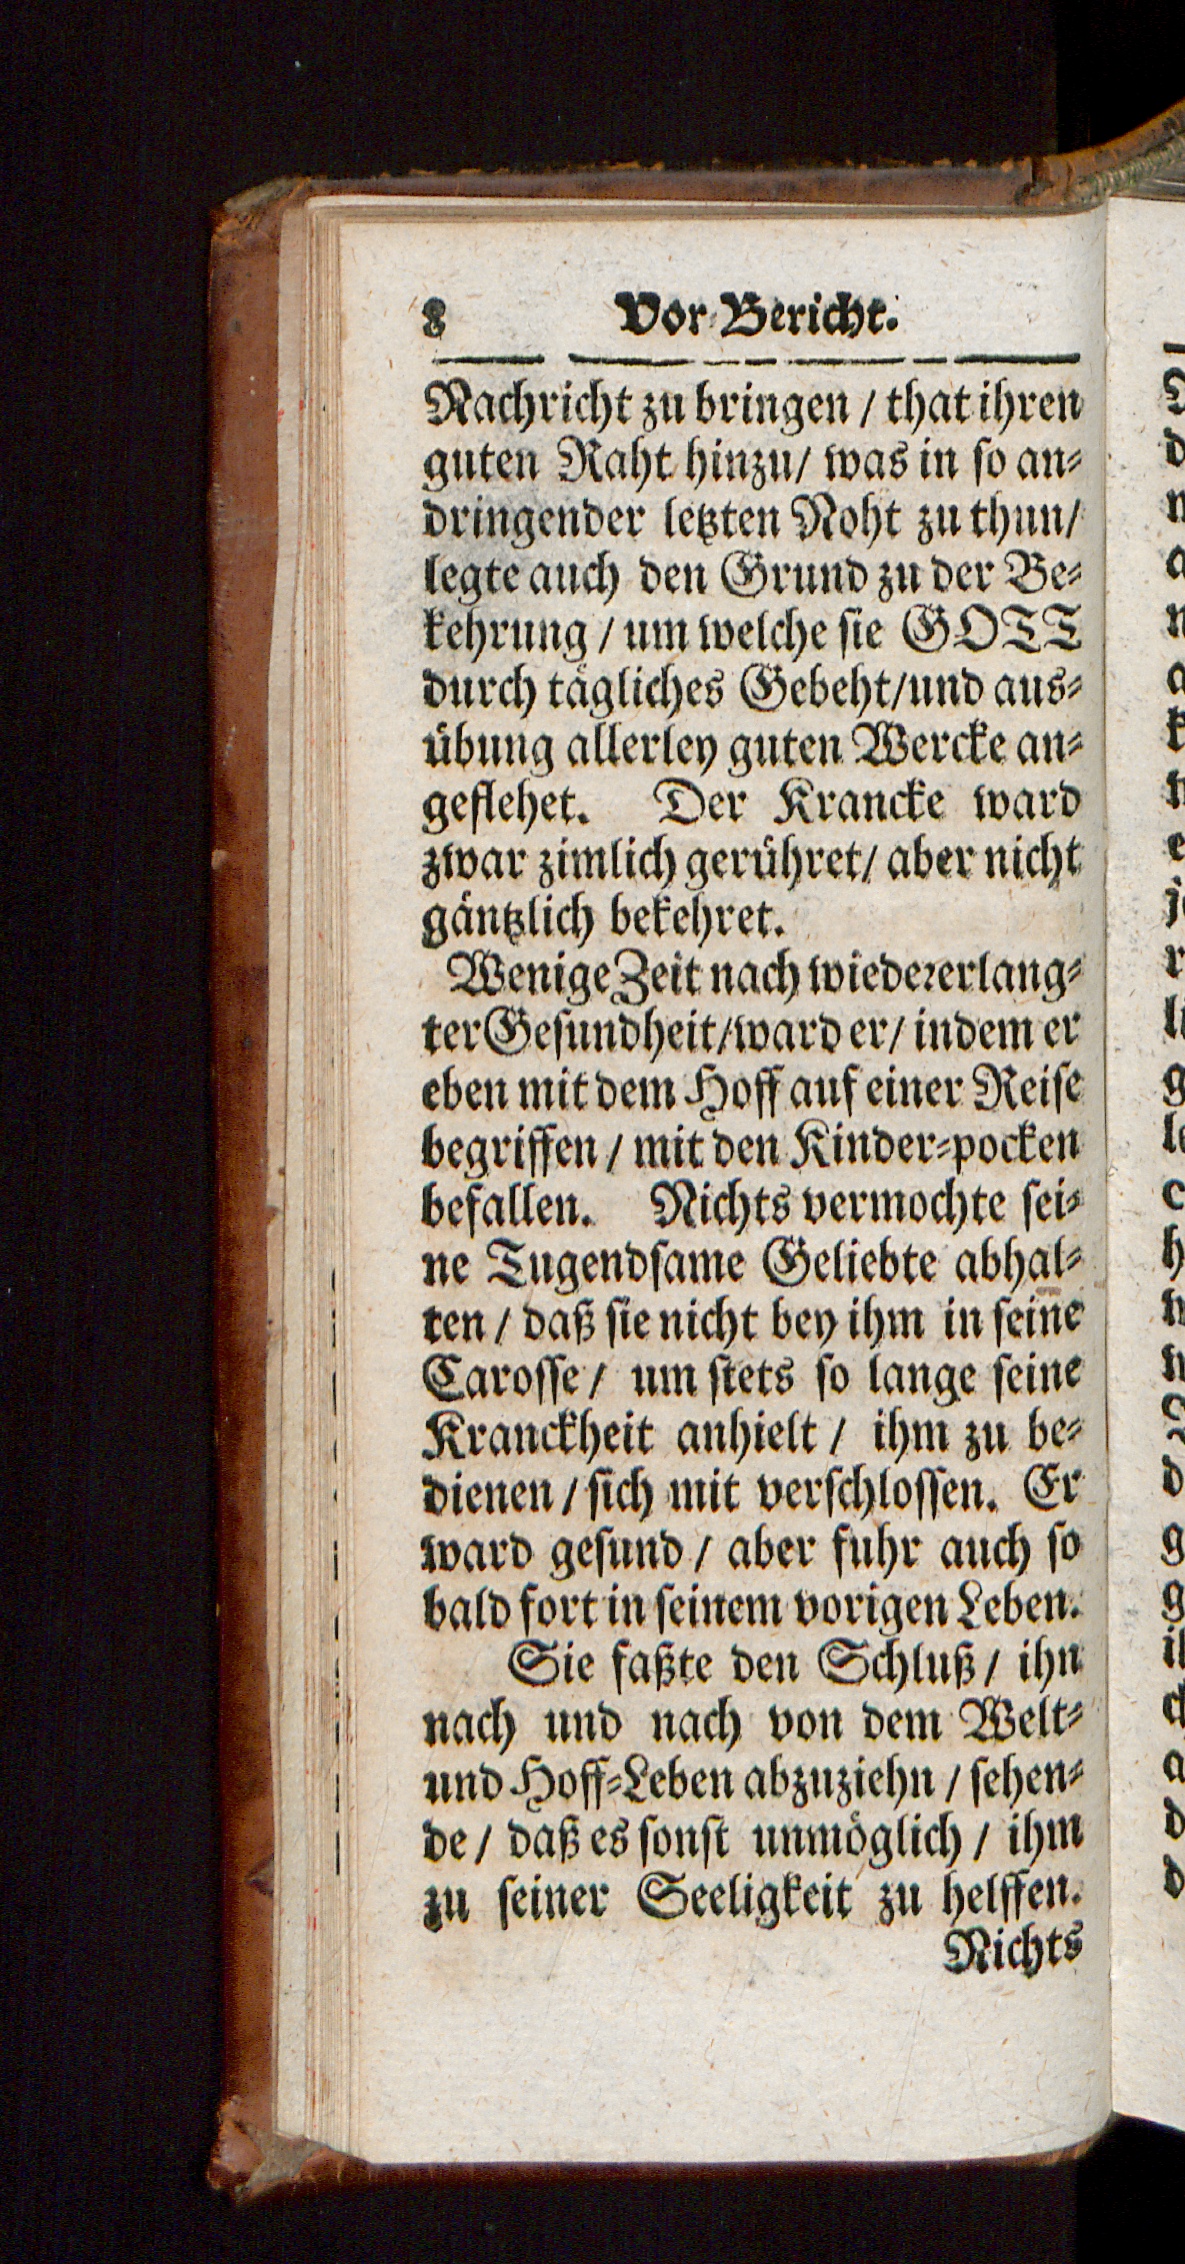 8 Vor-Bericht.
Nachricht zu bringen / that ihren
guten Raht hinzu/ was in so an-
dringender letzten Noht zu thun/
legte auch den Grund zu der Be-
kehrung / um welche sie GOTT
durch tägliches Gebeht/und aus-
übung allerley guten Wercke an-
geflehet. Der Krancke ward
zwar zimlich gerühret/ aber nicht
gäntzlich bekehret.
Wenige Zeit nach wiedererlang-
ter Gesundheit/ward er/ indem er
eben mit dem Hoff auf einer Reise
begriffen / mit den Kinder-pocken
befallen. Nichts vermochte sei-
ne Tugendsame Geliebte abhal-
ten / daß sie nicht bey ihm in seine
Carosse / um stets so lange seine
Kranckheit anhielt / ihm zu be-
dienen / sich mit verschlossen. Er
ward gesund / aber fuhr auch so
bald fort in seinem vorigen Leben.
Sie faßte den Schluß / ihn
nach und nach von dem Welt-
und Hoff-Leben abzuziehn / sehen-
de / daß es sonst unmöglich / ihm
zu seiner Seeligkeit zu helffen.
Nichts